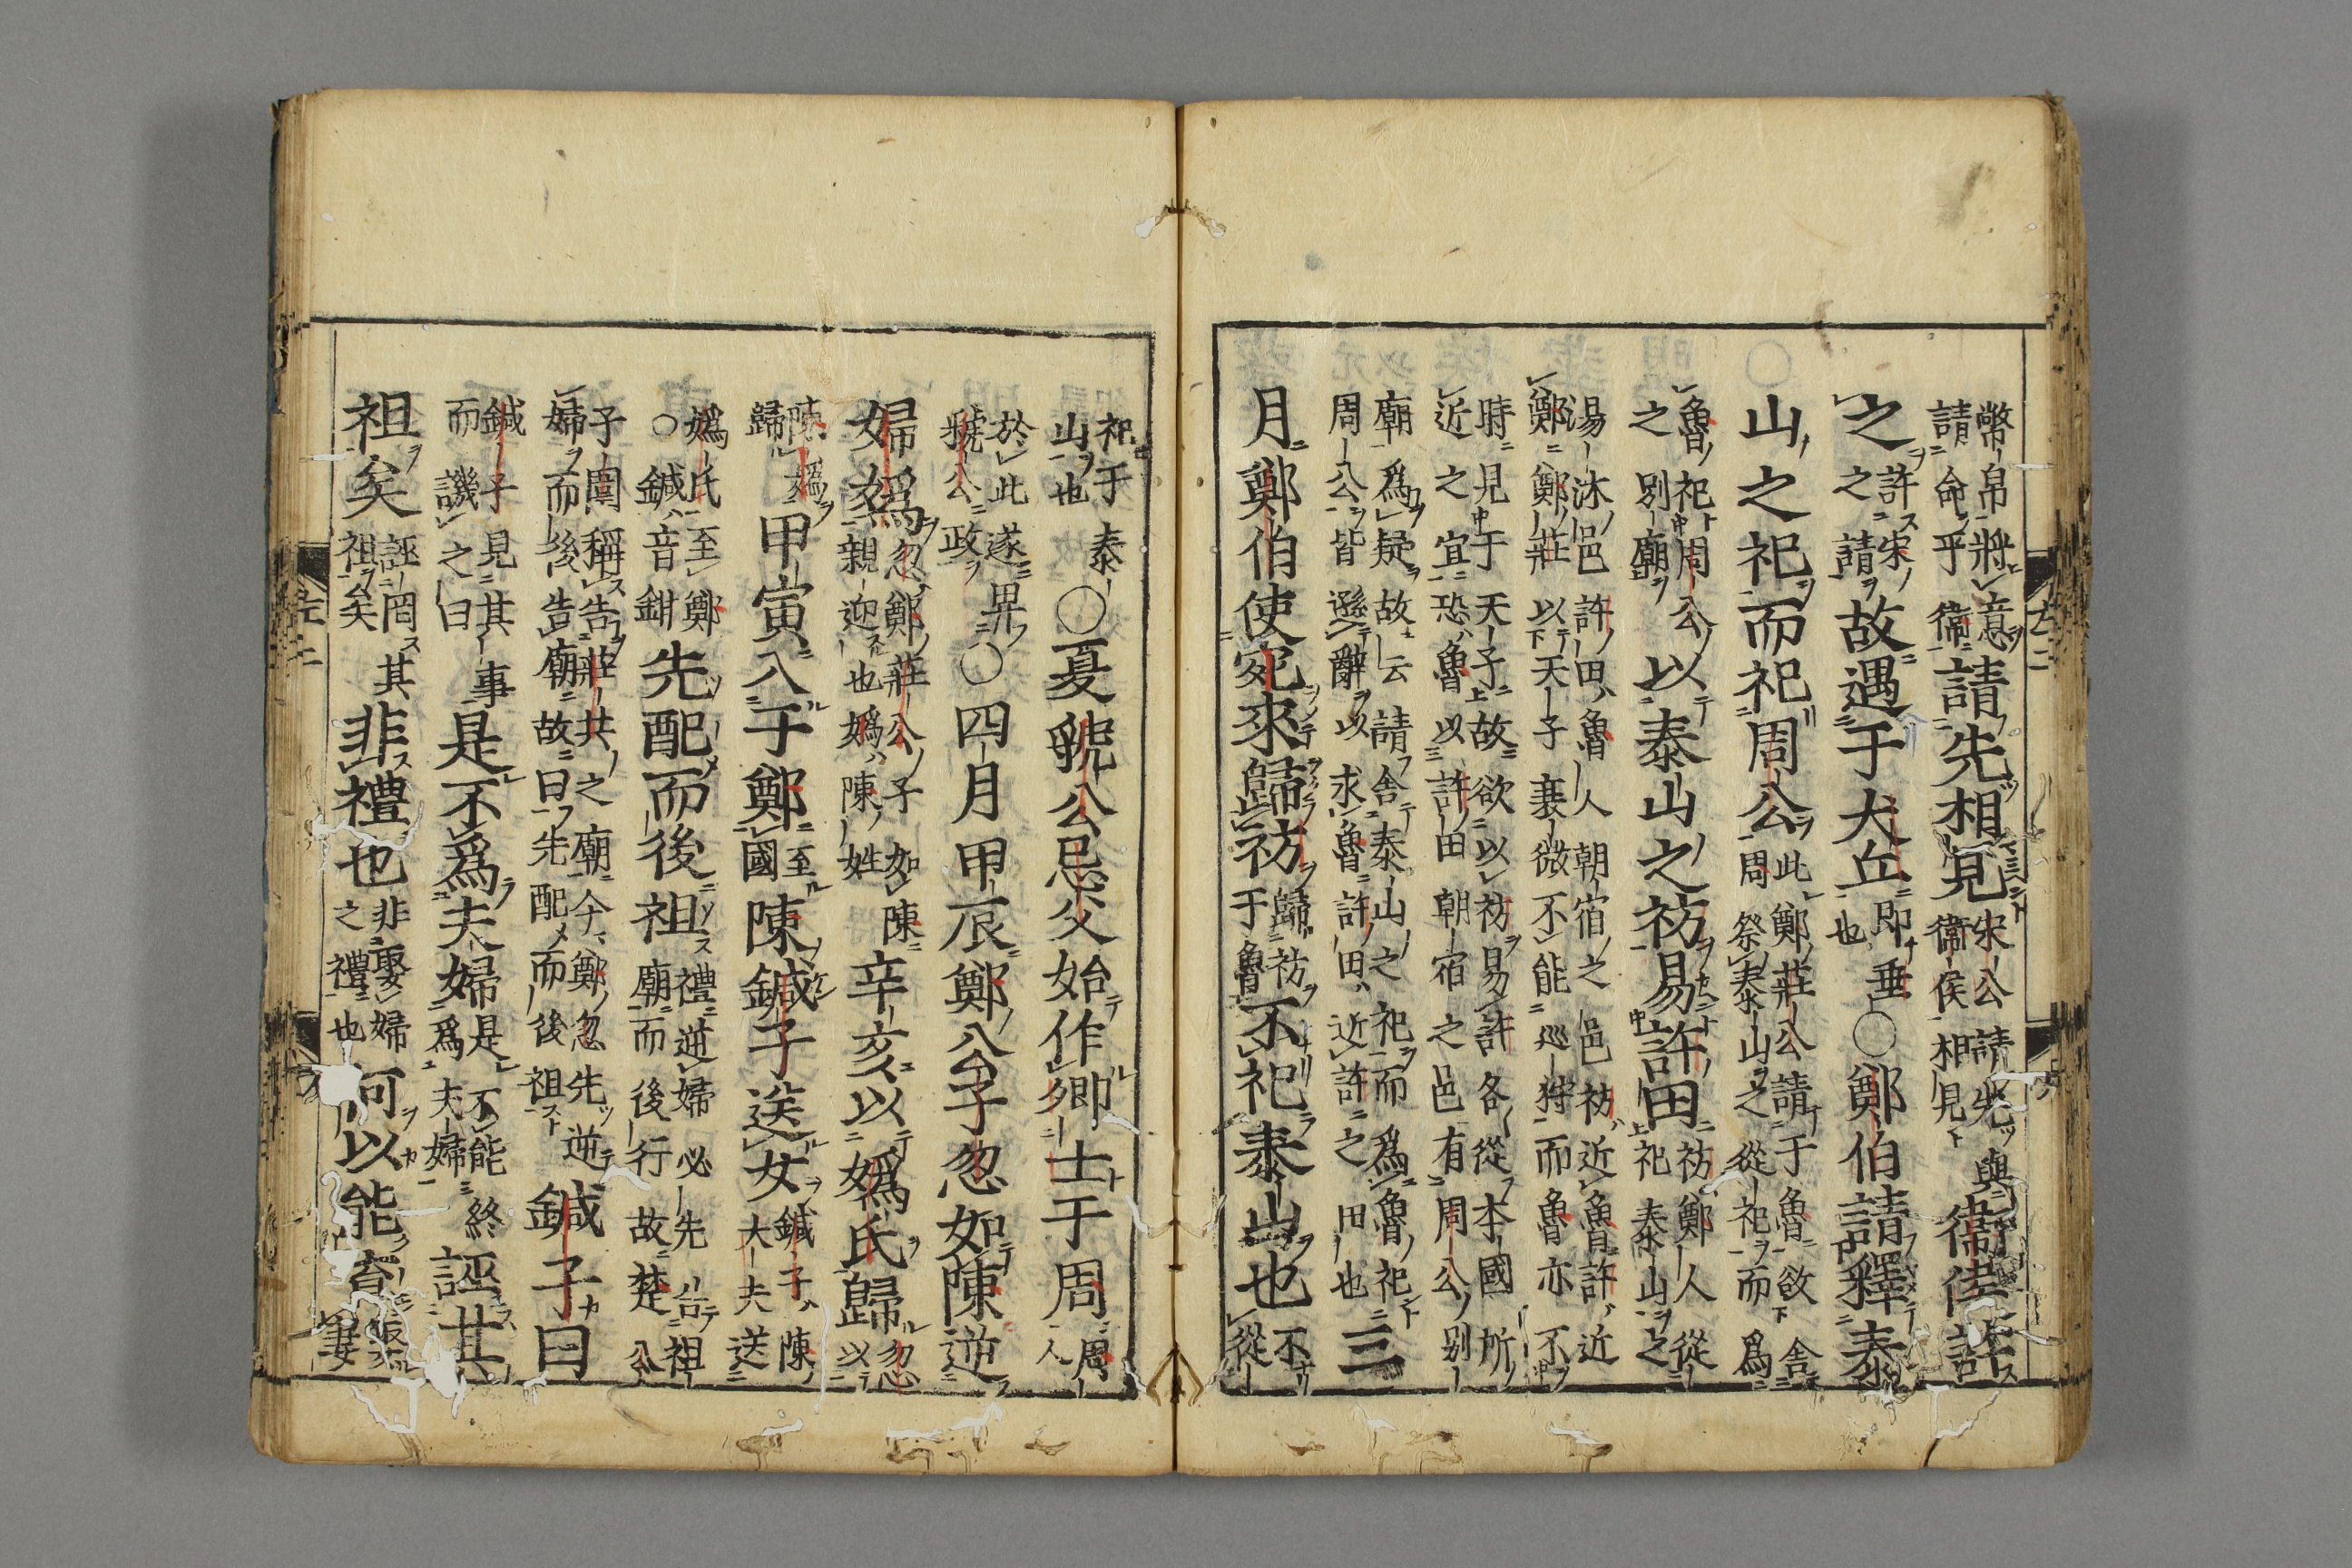 幣帛將意請命乎衛請先相見宋公請先與衛侯相見衛侯許
之許宋之請故遇于犬丘即垂也○鄭伯請釋泰
山之祀而祀周公此鄭莊公請于魯欲舍周祭泰山之從祀而爲
魯祀周公之別廟以泰山之祊易許田祊鄭人從祀泰山之
湯沐邑許田魯人朝宿之邑祊近魯許近鄭鄭莊以天子衰微不能巡狩而魯亦不
時見于天子故欲以祊易許各從本國所近之宜恐魯以許田朝宿之邑有周公別
廟爲疑故云請舍泰山之祀而爲魯祀周公皆遜辭以求魯許田近許之田也三
月鄭伯使宛來歸祊歸祊于魯不祀泰山也不從
祀于泰山也○夏虢公忌父始作卿士于周周人
於此遂畀虢公政○四月甲辰鄭公子忽如陳逆
婦嬀忽鄭莊公子如陳親迎也嬀陳姓辛亥以嬀氏歸忽以
陳嬀歸甲寅入于鄭至國陳鍼子送女鍼子陳大夫送
嬀氏至鄭○鍼音鉗先配而後祖禮逆婦必先告祖廟而後行故楚公
子圍稱告莊共之廟今鄭忽先逆婦而後告廟故曰先配而後祖鍼子曰
鍼子見其事而譏之曰是不爲夫婦是不能終爲夫婦誣其
祖矣誣罔其祖矣非禮也非娶婦之禮也何以能育